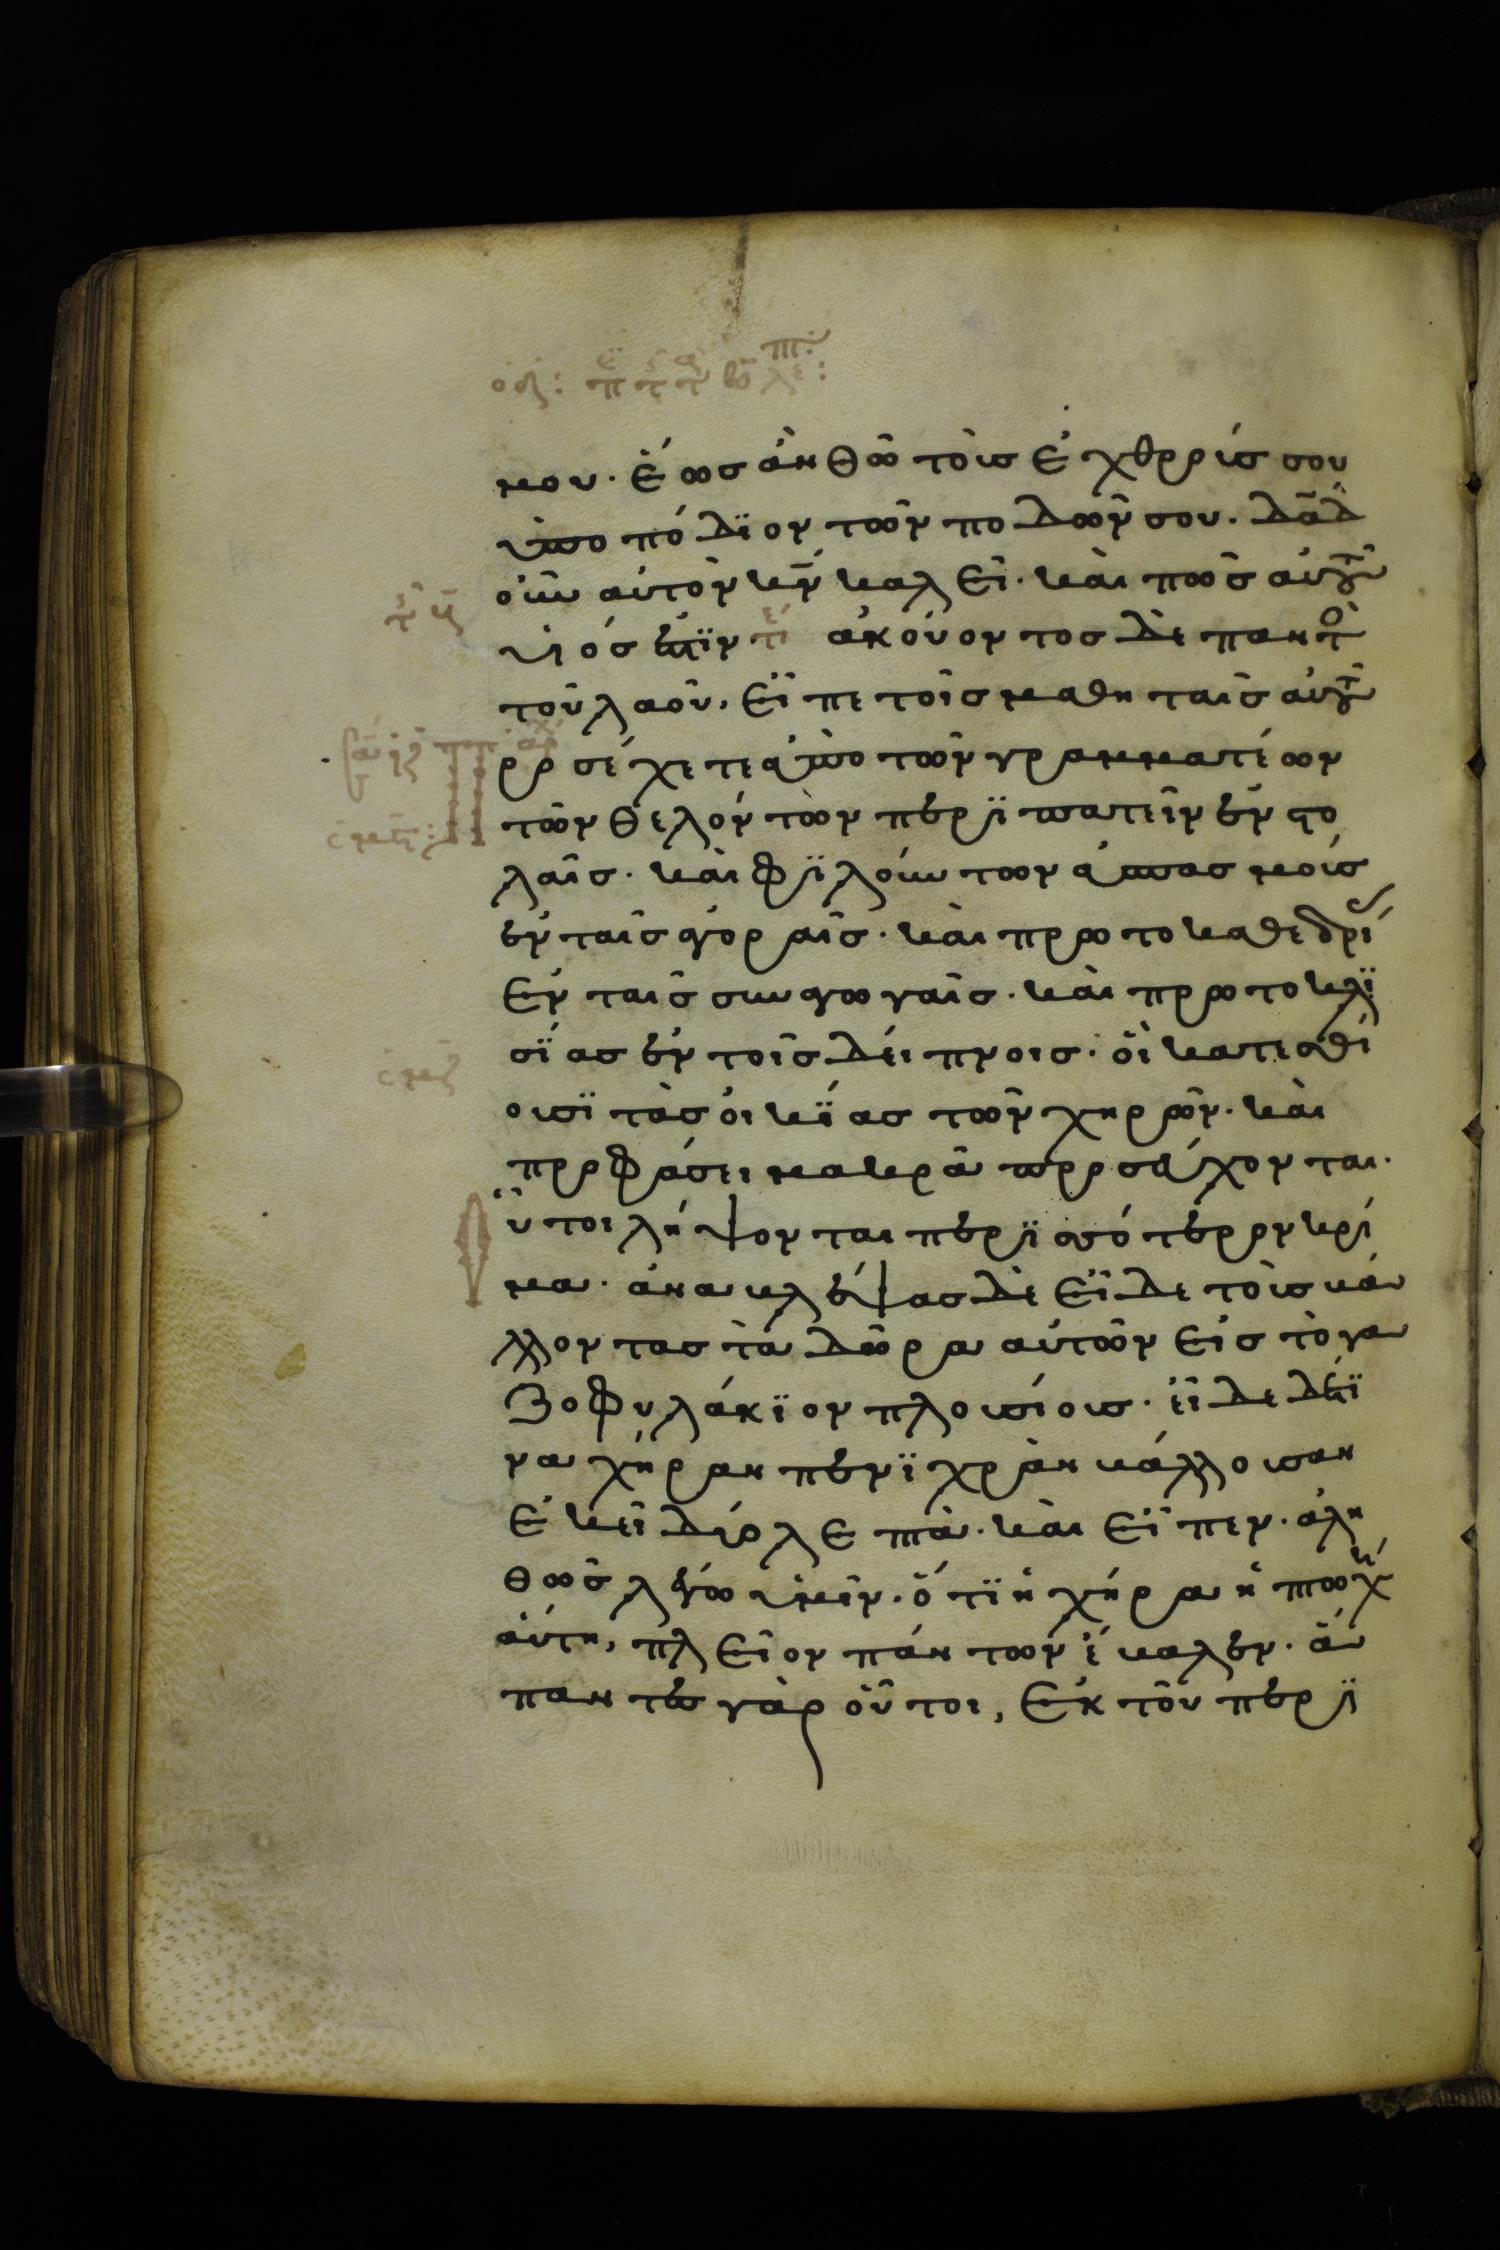 μου· ἕως ἂν θῶ τοὺς ἐχθρούς σου
ὑποπόδϊον τῶν ποδῶν σου. δᾱδ
οὖν αὐτὸν κ̄ν καλεῖ· καὶ πῶς αὐτοῦ
υἱός ἐστϊν ἀκούοντος δὲ παντὸ
τοῦ λαοῦ, εἶπε τοῖς μαθηταῖς αὐτοῦ
προσέχετε ἀπὸ τῶν γραμματέων
τῶν θελόντων περϊπατεῖν ἐν στο
λαῖς· καὶ φϊλούντων ἀσπασμοὺς
ἐν ταῖς ἀγοραῖς· καὶ πρωτοκαθεδρί
ἐν ταῖς συναγωγαῖς· καὶ πρωτοκλϊ
σΐας ἐν τοῖς δείπνοις· οἳ κατεσθί
ουσϊ τὰς οἰκΐας τῶν χηρῶν· καὶ
προφάσει μακρᾶ προσεύχονται.
ὗτοι λήψονται περϊσσότερον κρί
μα· ἀναβλέψας δὲ εἶδε τοὺς βά
λλοντας τὰ δῶρα αὐτῶν εἰς τὸ γα
ζοφυλάκϊον πλουσίους· εἶδε δέ τϊ
να χήραν πενϊχρὰν βάλλουσαν
ἐκεῖ δύο λεπτὰ· καὶ εἶπεν· ἀλη
θῶς λέγω ὑμῖν· ὅτϊ ἡ χήρα ἡ πτωχὴ
αὕτη, πλεῖον πάντων ἔβαλεν· ἅ
παντες γὰρ οὗτοι, ἐκ τοῦ περϊ